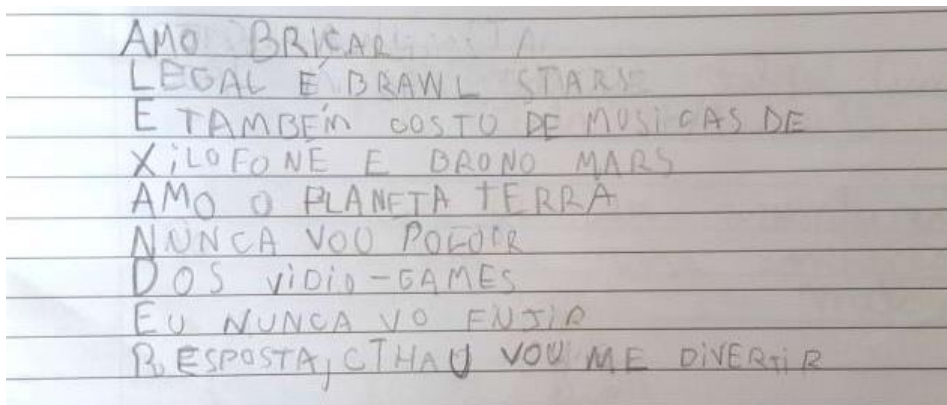 AMO BRICAR
LEGAL É BRAWL STARS
E TAMBÉM GOSTO DE MUSICAS DE
XiLOFONE E BRONO MARS
AMO O PLANETA TERRA
NUNCA VOU POLUIR
DOS ViDiO-GAMES
EU NUNCA VO ENJIR
RESPOSTA, CTHAU VOU ME DiVERTiR